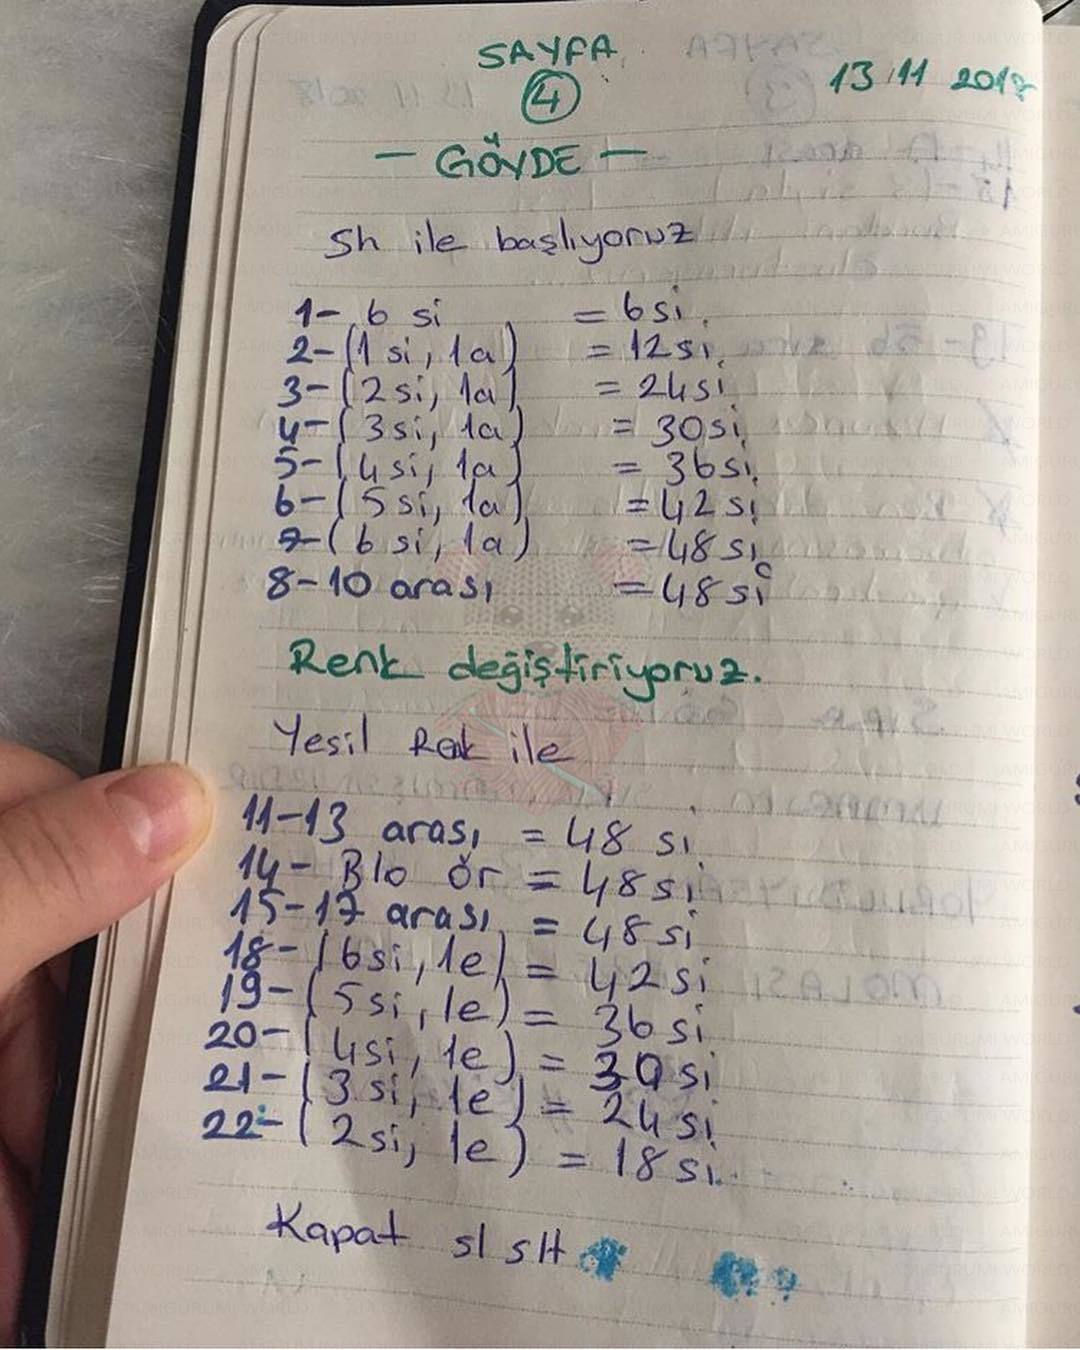 SAYFA
4
13 11 2018
— GÖVDE —
Sh ile başlıyoruz
1- 6 si = 6 si.
2- (1 si, 1a) = 12 si.
3- (2 si, 1a) = 24 si
4- (3 si, 1a) = 30 si
5- (4 si, 1a) = 36 si.
6- (5 si, 1a) = 42 si
7- (6 si, 1a) = 48 si
8-10 arası = 48 si
Renk değiştiriyoruz.
Yesil Rek ile
11-13 arası = 48 si
14- Blo ör = 48 si
15-17 arası = 48 si
18- (6 si, 1e) = 42 si
19- (5 si, 1e) = 36 si
20- (4 si, 1e) = 30 si
21- (3 si, 1e) = 24 si
22- (2 si, 1e) = 18 si.
Kapat